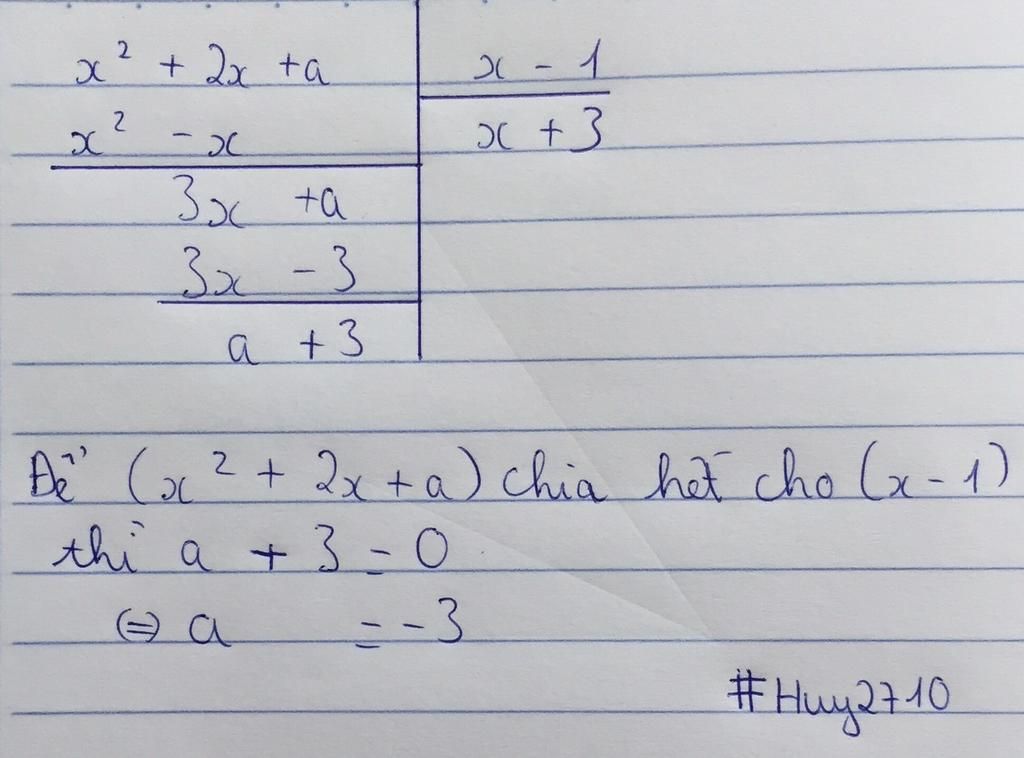 x² + 2x + a | x - 1
x² - x | x + 3
3x + a
3x - 3
a + 3
Để (x² + 2x + a) chia hết cho (x - 1)
thì a + 3 = 0
⇔ a = -3
#Huy2710